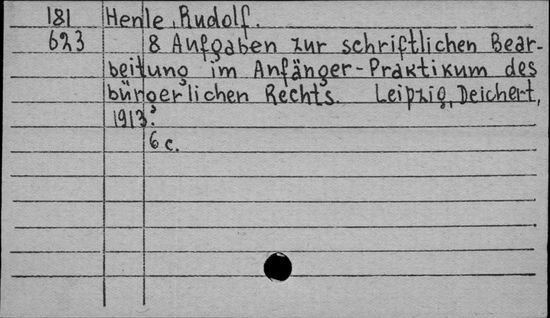 181 Henle, Rudolf.
623 8 Aufgaben zur schriftlichen Bear-
beitung im Anfänger-Praktikum des
bürgerlichen Rechts. Leipzig, Deichert,
1913?
6 c.